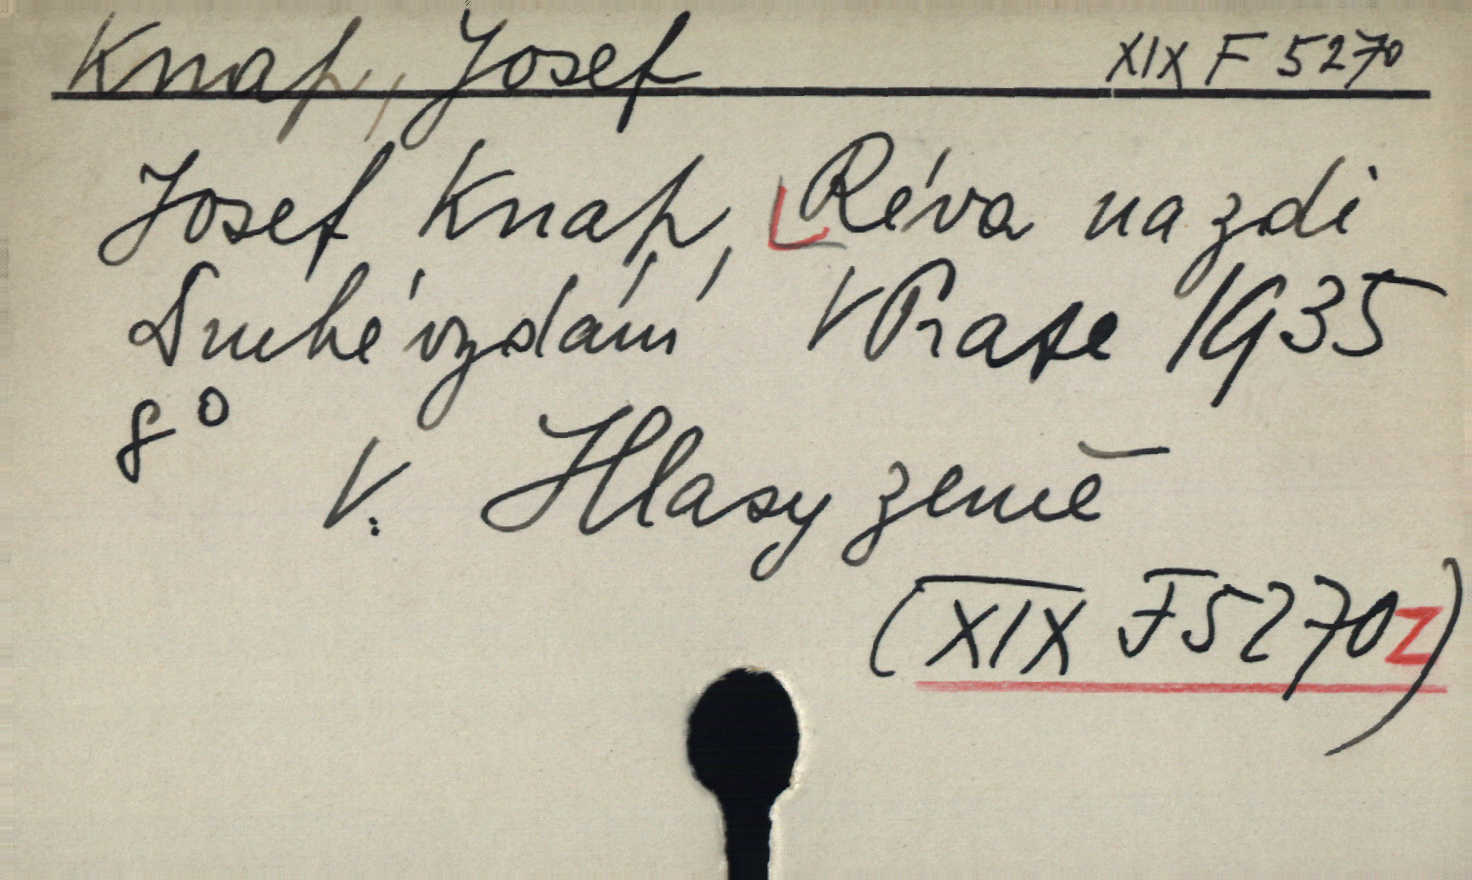 Knap, Josef XIX F 5270
Josef Knap, Réva na zdi
Druhé vydání V Praze 1935
8°
V. Hlasy země
(XIX F 5270z)